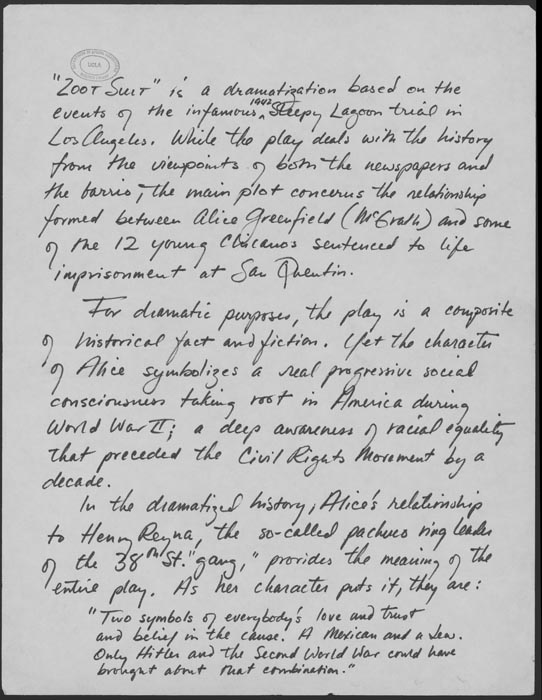 UCLA
"Zoot Suit" is a dramatization based on the
events of the infamous 1942 Sleepy Lagoon trial in
Los Angeles. While the play deals with the history
from the viewpoints of both the newspapers and
the barrio, the main plot concerns the relationship
formed between Alice Greenfield (McGrath) and some
of the 12 young Chicanos sentenced to life
imprisonment at San Quentin.
For dramatic purposes, the play is a composite
of historical fact and fiction. Yet the character
of Alice symbolizes a real progressive social
consciousness taking root in America during
World War II; a deep awareness of racial equality
that preceded the Civil Rights Movement by a
decade.
In the dramatized history, Alice's relationship
to Henry Reyna, the so-called pachuco ring leader
of the 38th St. "gang," provides the meaning of the
entire play. As her character puts it, they are:
"Two symbols of everybody's love and trust
and belief in the cause. A Mexican and a Jew.
Only Hitler and the Second World War could have
brought about that combination."